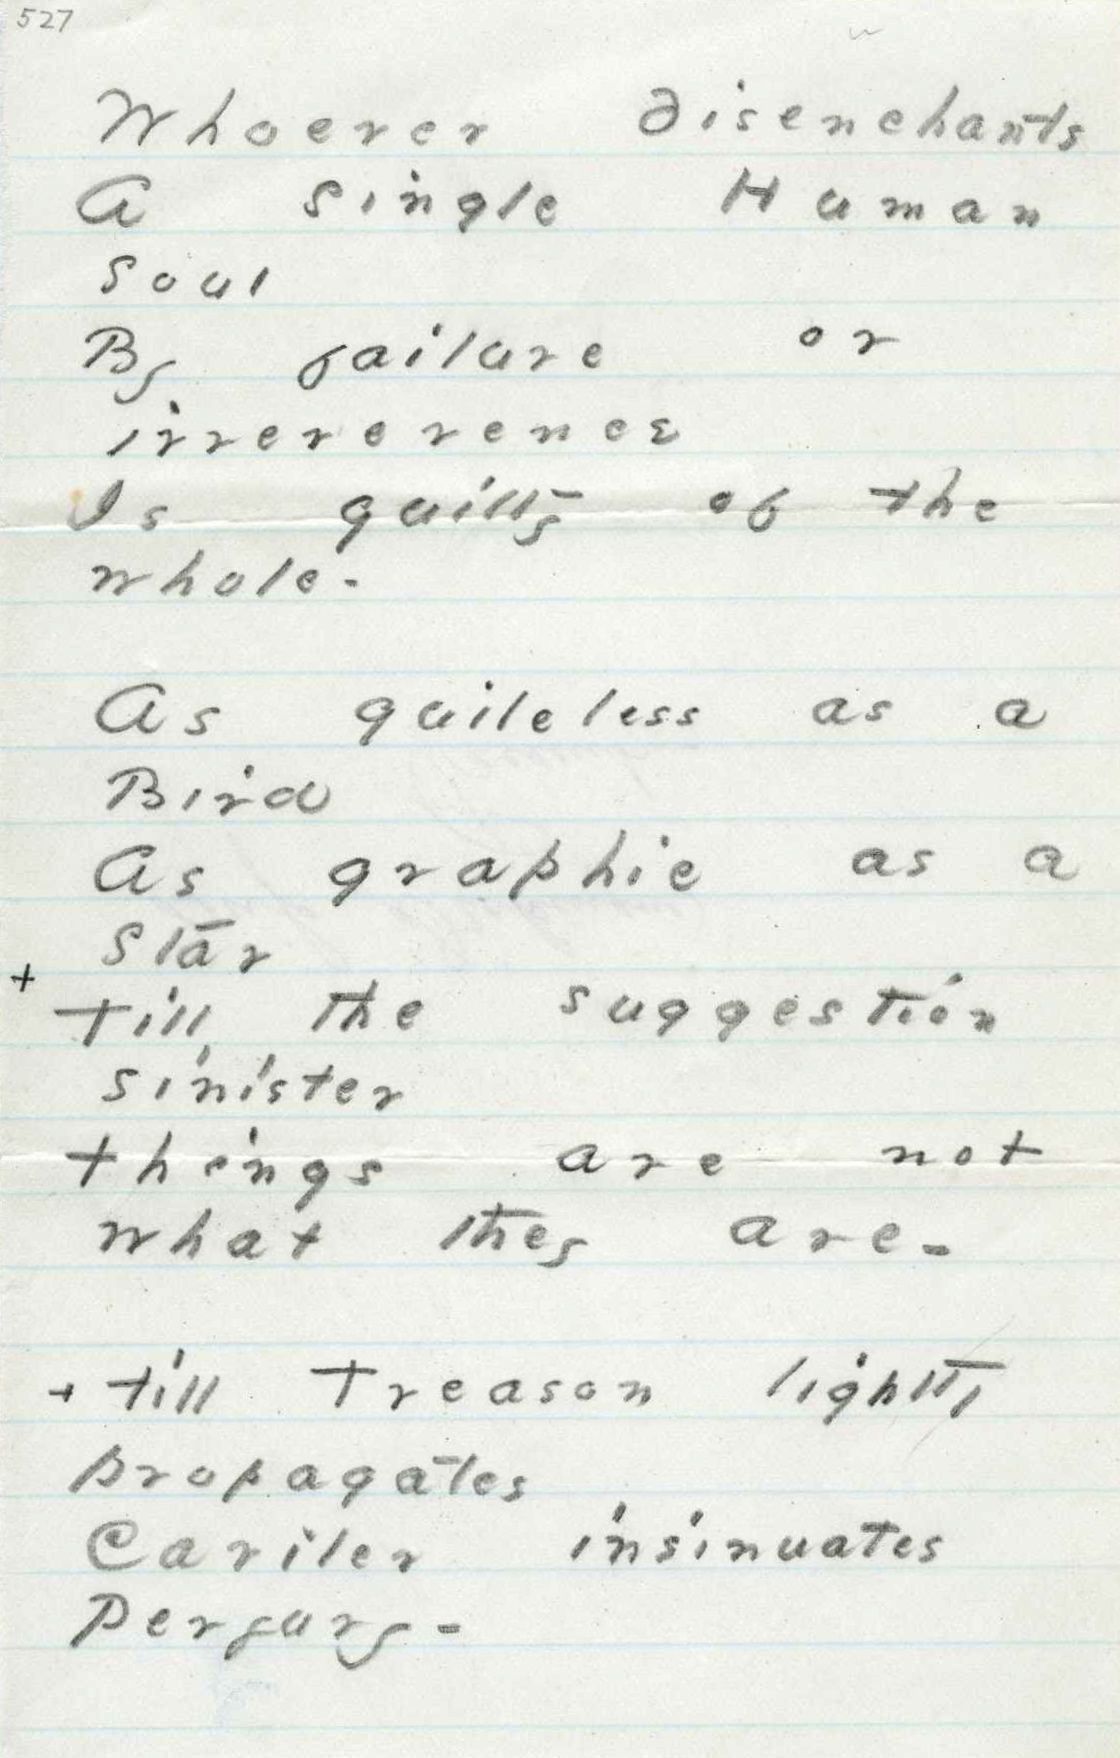 527
Whoever disenchants
A single Human
soul
By failure or
irreverence
Is guilty of the
whole -
As guileless as a
Bird
As graphic as a
Star
+
till the suggestion
sinister
things are not
what they are -
+ till Treason lightly
propagates
Caviler insinuates
Perjury -